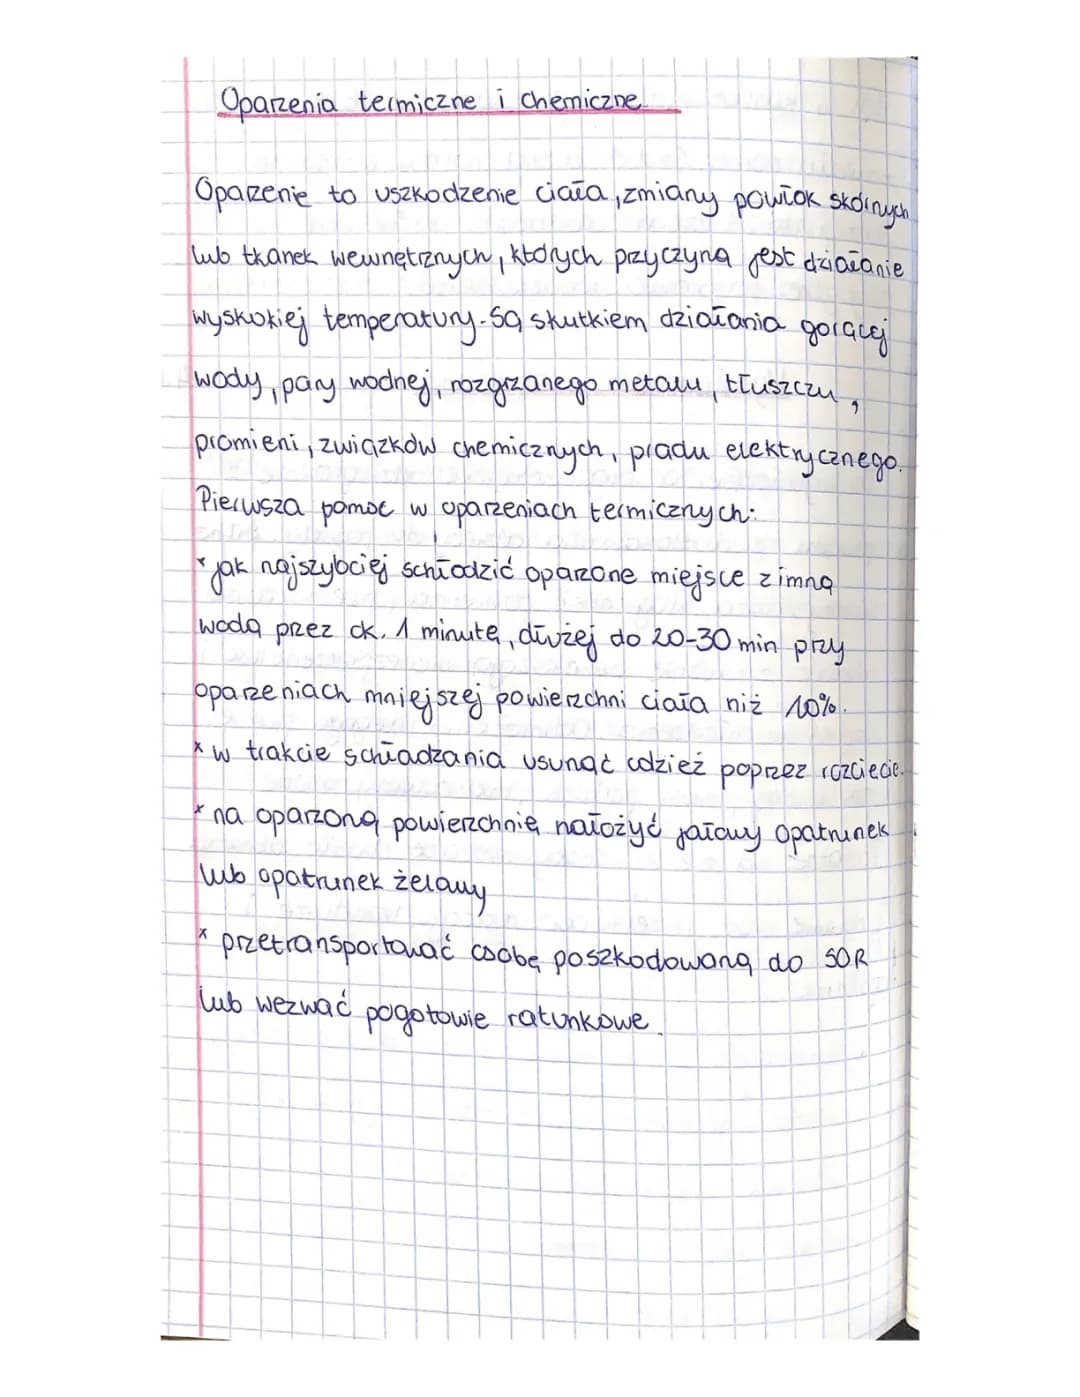 Oparzenia termiczne i chemiczne.
Oparzenie to uszkodzenie ciała, zmiany powłok skórnych
lub tkanek wewnętrznych, których przyczyną jest działanie
wyskokiej temperatury. Są skutkiem działania gorącej
wody, pary wodnej, rozgrzanego metalu, tłuszczu,
promieni, związków chemicznych, prądu elektrycznego.
Pierwsza pomoc w oparzeniach termicznych:
* jak najszybciej schłodzić oparzone miejsce zimną
wodą przez ok. 1 minutę, dłużej do 20-30 min przy
oparzeniach mniejszej powierzchni ciała niż 10%.
* w trakcie schładzania usunąć odzież poprzez rozcięcie.
* na oparzoną powierzchnię nałożyć jałowy opatrunek
lub opatrunek żelowy
* przetransportować osobę poszkodowaną do SOR
lub wezwać pogotowie ratunkowe.